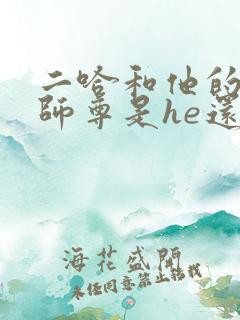 二哈和他的
師尊是he還
海花盛開
未經同意禁止轉載